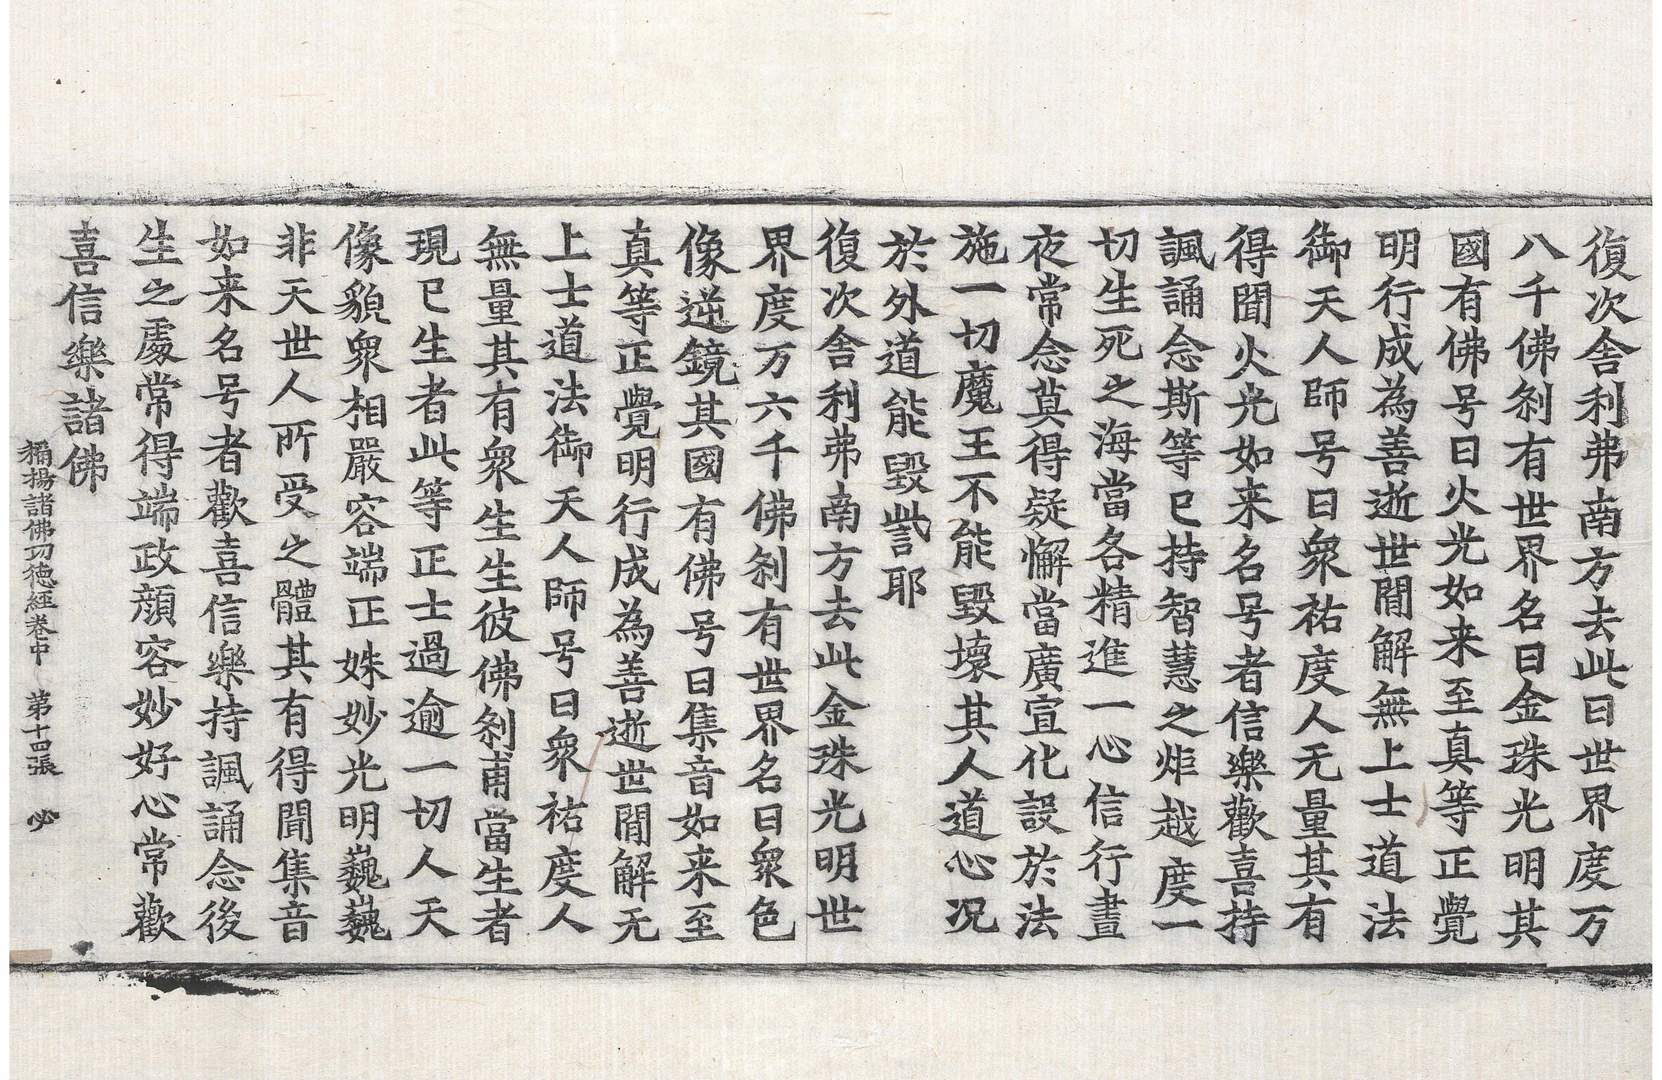 復次舎利弗南方去此曰世界度万
八千佛刹有世界名曰金珠光明其
國有佛号曰火光如来至真等正覺
明行成為善逝世閒解無上士道法
御天人師号曰衆祐度人无量其有
得聞火光如来名号者信樂歡喜持
諷誦念斯等已持智慧之炬越度一
切生死之海當各精進一心信行晝
夜常念莫得疑懈當廣宣化設於法
施一切魔王不能毀壞其人道心况
於外道能毀訾耶
復次舎利弗南方去此金珠光明世
界度万六千佛刹有世界名曰衆色
像逆鏡其國有佛号曰集音如来至
真等正覺明行成為善逝世閒解无
上士道法御天人師号曰衆祐度人
無量其有衆生生彼佛刹甫當生者
現已生者此等正士過逾一切人天
像貌衆相嚴容端正姝妙光明巍巍
非天世人所受之體其有得聞集音
如来名号者歡喜信樂持諷誦念後
生之處常得端政顔容妙好心常歡
喜信樂諸佛
稱揚諸佛功德經卷中 第十四張 必